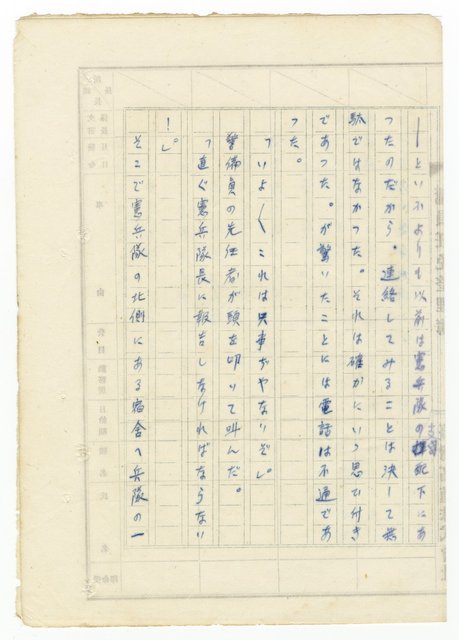 ―といふよりも以前は憲兵隊の支配下にあ
つたのだから。連絡してみることは決して無
駄ではなかつた。それは確かにいゝ思ひ付き
であつた。が驚いたことには電話は不通であ
つた。
「いよ〳〵これは只事ぢやないぞ」。
警備員の先任者が頭を叩いて叫んだ。
「直ぐ憲兵隊長に報告しなければならない
!」。
そこで憲兵隊の北側にある宿舎へ兵隊の一